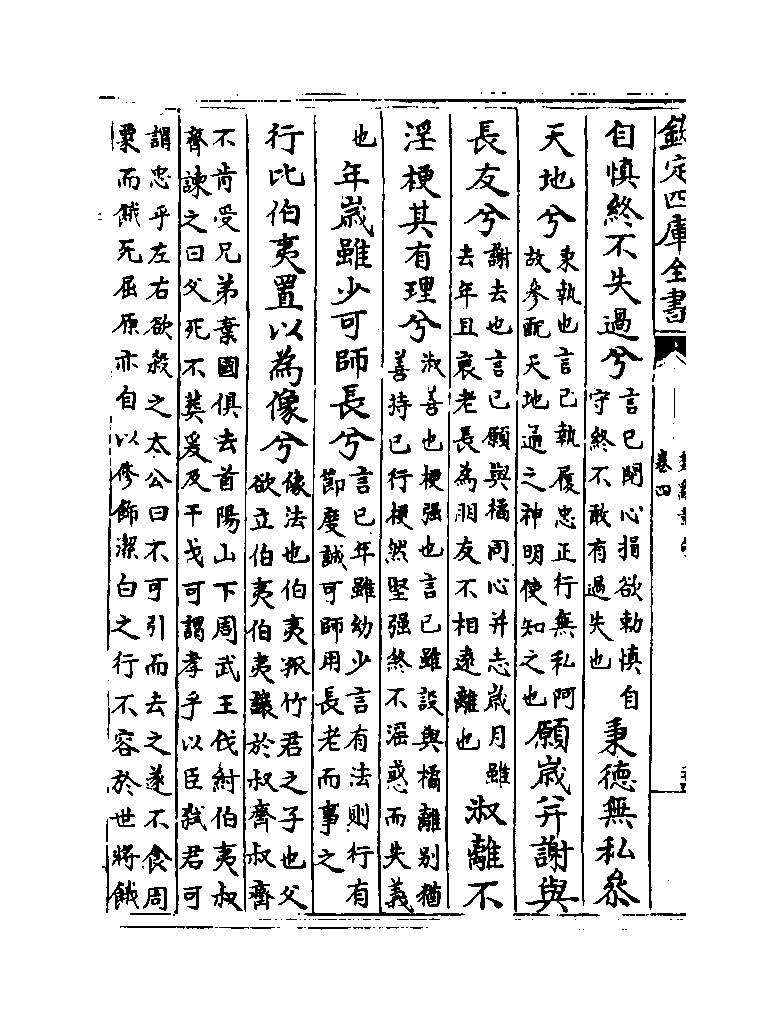 欽定四庫全書
卷四
自慎終不失過兮
言己閉心捐欲勅慎自
守終不敢有過失也
秉德無私叅
天地兮
秉執也言己執履忠正行無私阿
故參配天地通之神明使知之也
願嵗并謝與
長友兮
謝去也言己願與橘同心并志嵗月雖
去年且衰老長為朋友不相逺離也
淑離不
淫梗其有理兮
淑善也梗强也言己雖設與橘離别猶
善持己行梗然堅强終不淫惑而失義
也
年嵗雖少可師長兮
言己年雖幼少言有法則行有
節度誠可師用長老而事之
行比伯夷置以為像兮
像法也伯夷孤竹君之子也父
欲立伯夷伯夷讓於叔齊叔齊
不肯受兄弟棄國俱去首陽山下周武王伐紂伯夷叔
齊諫之曰父死不葬爰及干戈可謂孝乎以臣弑君可
謂忠乎左右欲殺之太公曰不可引而去之遂不食周
粟而餓死屈原亦自以修飾潔白之行不容於世將餓